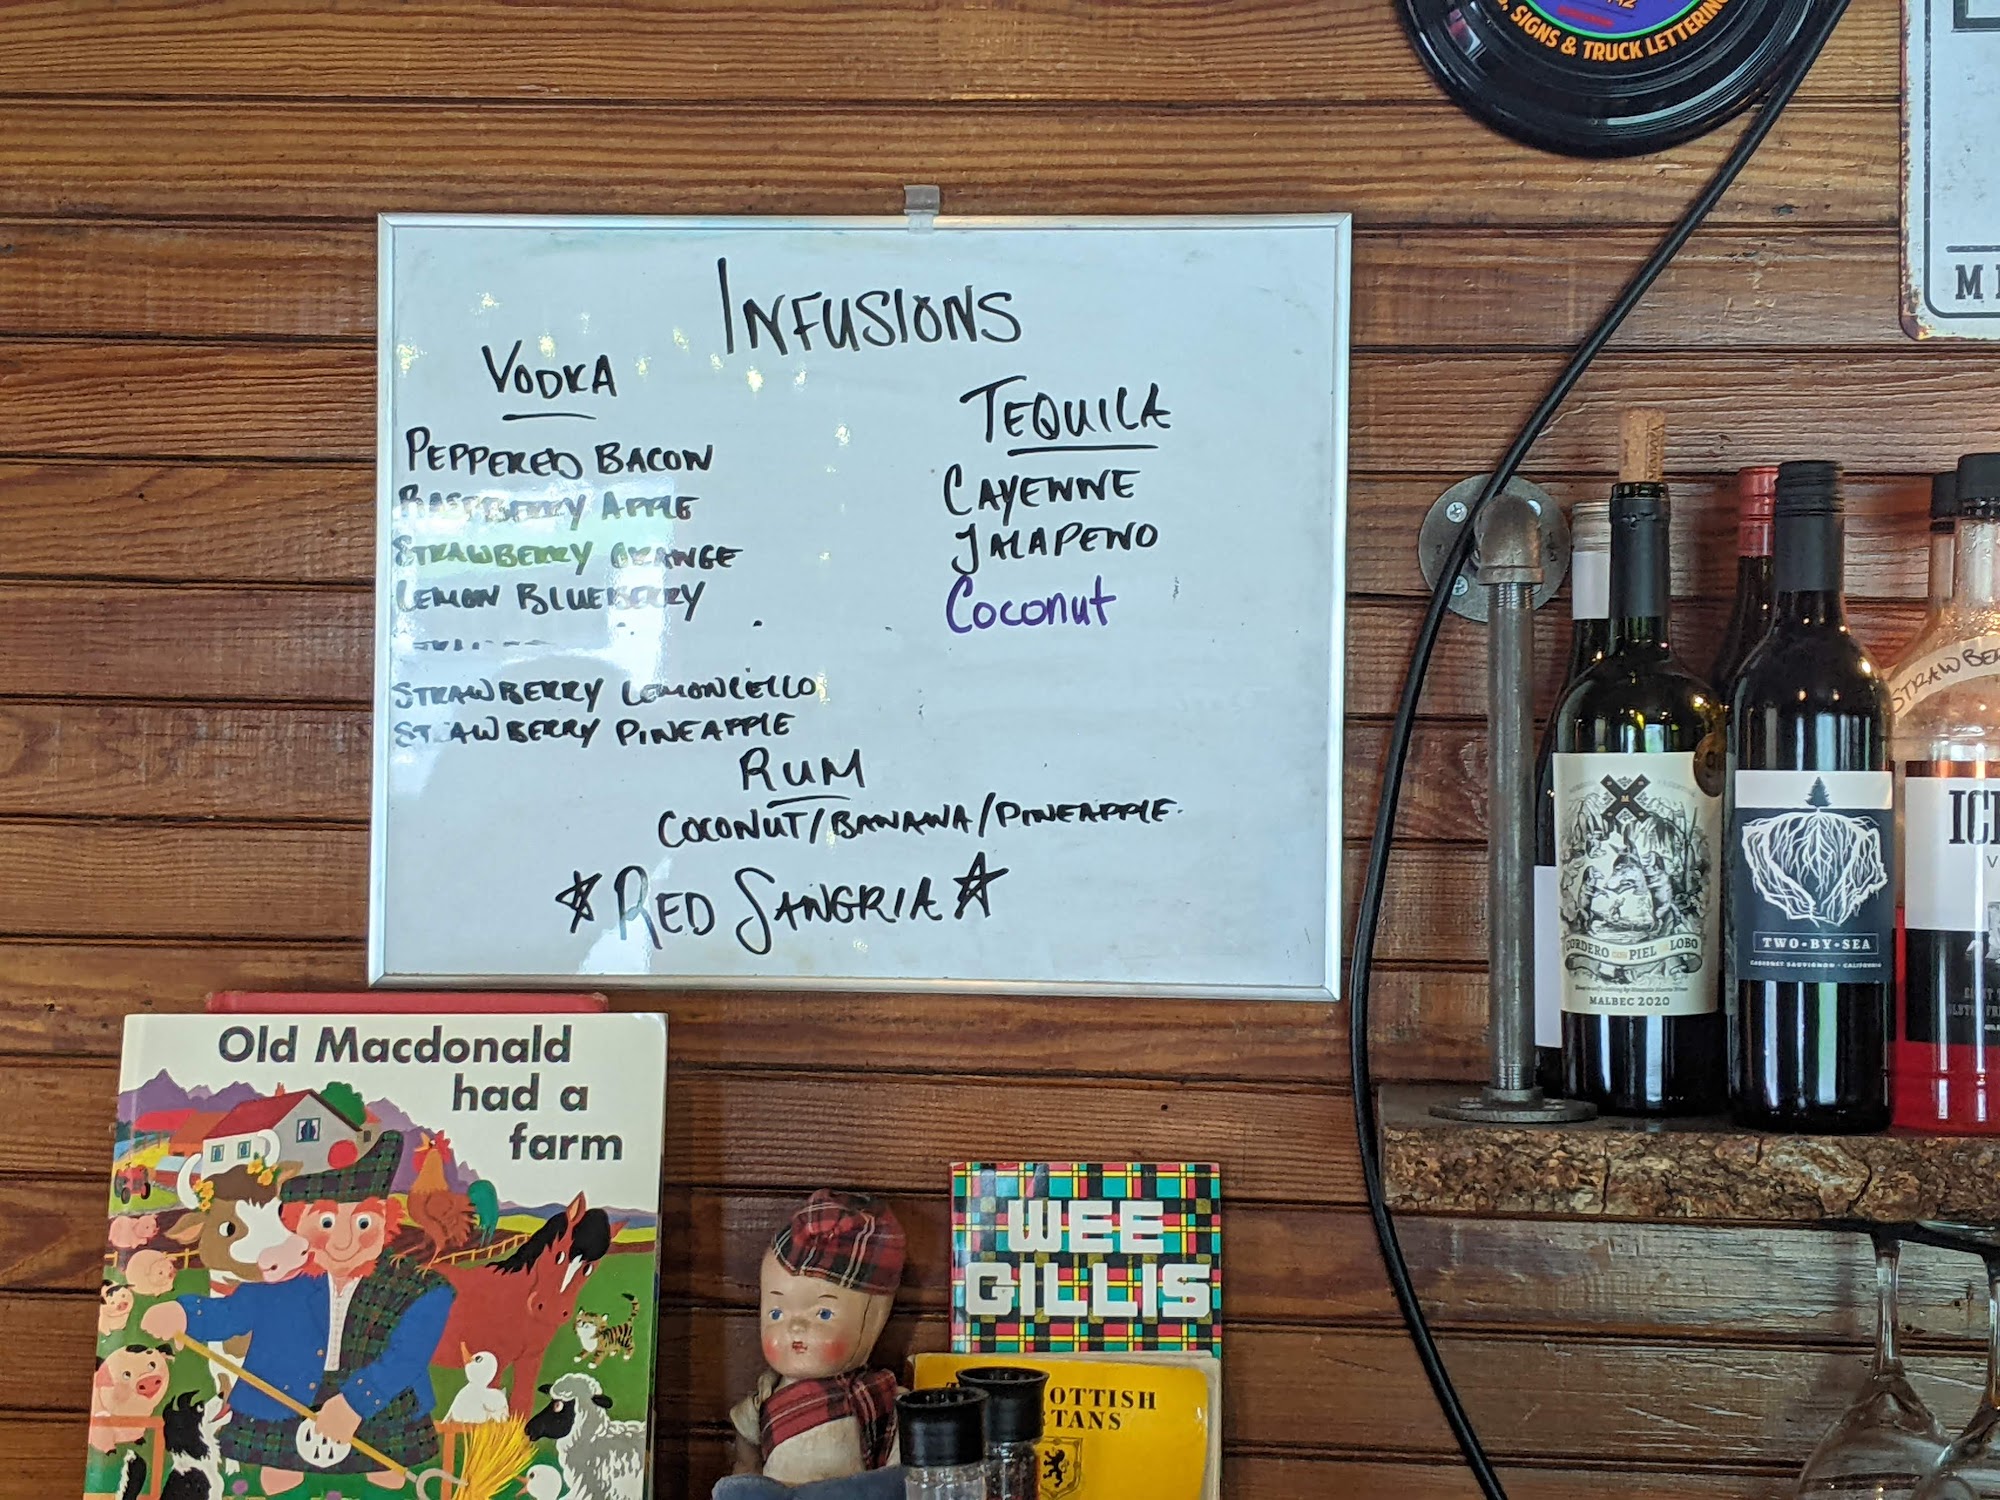 SIGNS & TRUCK LETTERING
INFUSIONS
VODKA
PEPPERED BACON
RASPBERRY APPLE
STRAWBERRY ORANGE
LEMON BLUEBERRY
STRAWBERRY LEMONCELLO
STRAWBERRY PINEAPPLE
TEQUILA
CAYENNE
JALAPENO
Coconut
RUM
COCONUT/BANANA/PINEAPPLE
RED SANGRIA
Old Macdonald
had a
farm
WEE
GILLIS
OTTISH
TANS
CORDERO CON PIEL DE LOBO
MALBEC 2020
TWO-BY-SEA
CABERNET SAUVIGNON - CALIFORNIA
STRAWBE